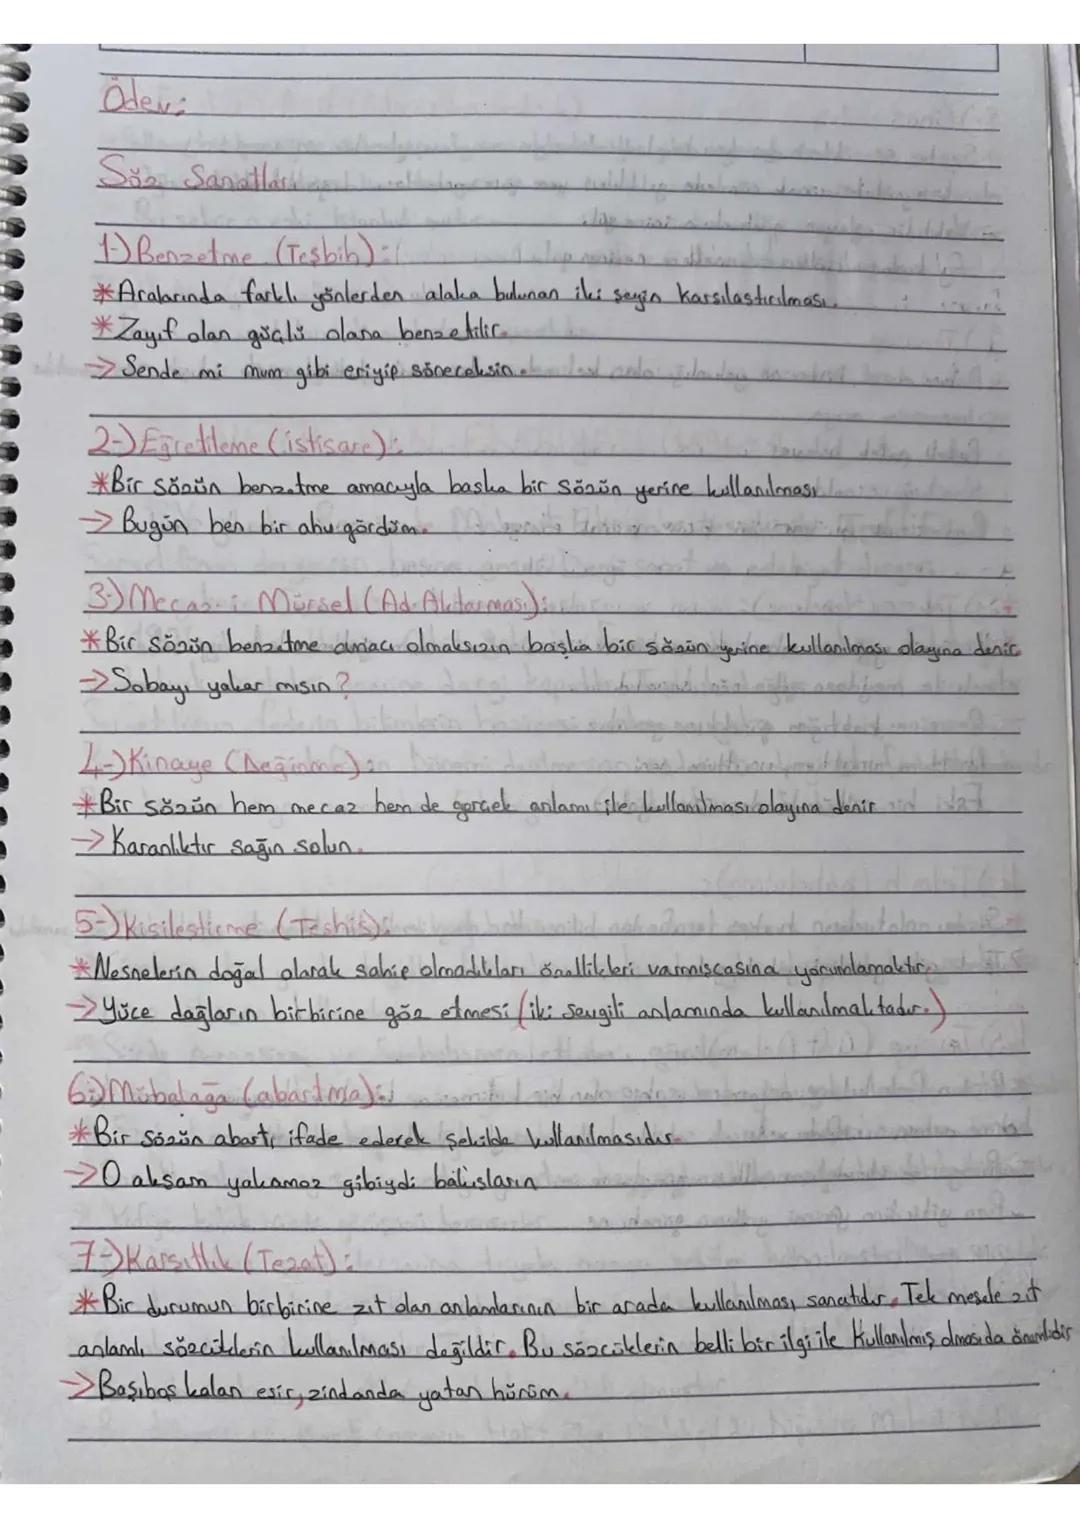 Ödev:
Söz Sanatları
1-) Benzetme (Teşbih):
* Aralarında farklı yönlerden alaka bulunan iki şeyin karşılaştırılması.
* Zayıf olan güçlü olana benzetilir.
→ Sende mi mum gibi eriyip söneceksin.
2-) Eğretileme (istiare):
* Bir sözün benzetme amacıyla baska bir sözün yerine kullanılması
→ Bugün ben bir ahu gördüm.
3-) Mecaz-i Mürsel (Ad Aktarması):
* Bir sözün benzetme amacı olmaksızın başka bir sözün yerine kullanılması olayına denir
→ Sobayı yakar mısın?
4-) Kinaye (Değinme):
* Bir sözün hem mecaz hem de gerçek anlamı ile kullanılması olayına denir
→ Karanlıktır sağın solun.
5-) Kisilestirme (Teshis):
* Nesnelerin doğal olarak sahip olmadıkları özellikleri varmışcasına yorumlamaktır.
→ Yüce dağların birbirine göz etmesi (iki sevgili anlamında kullanılmaktadır.)
6-) Mübalağa (abartma):
* Bir sözün abartı ifade edecek şekilde kullanılmasıdır.
→ O akşam yakamoz gibiydi bakışların
7-) Karsıtlık (Tezat):
* Bir durumun birbirine zıt olan anlamlarının bir arada kullanılması sanatıdır. Tek mesele zıt
anlamlı sözcüklerin kullanılması değildir. Bu sözcüklerin belli bir ilgi ile kullanılmış olması da önemlidir
→ Başıboş kalan esir, zindanda yatan hürüm.